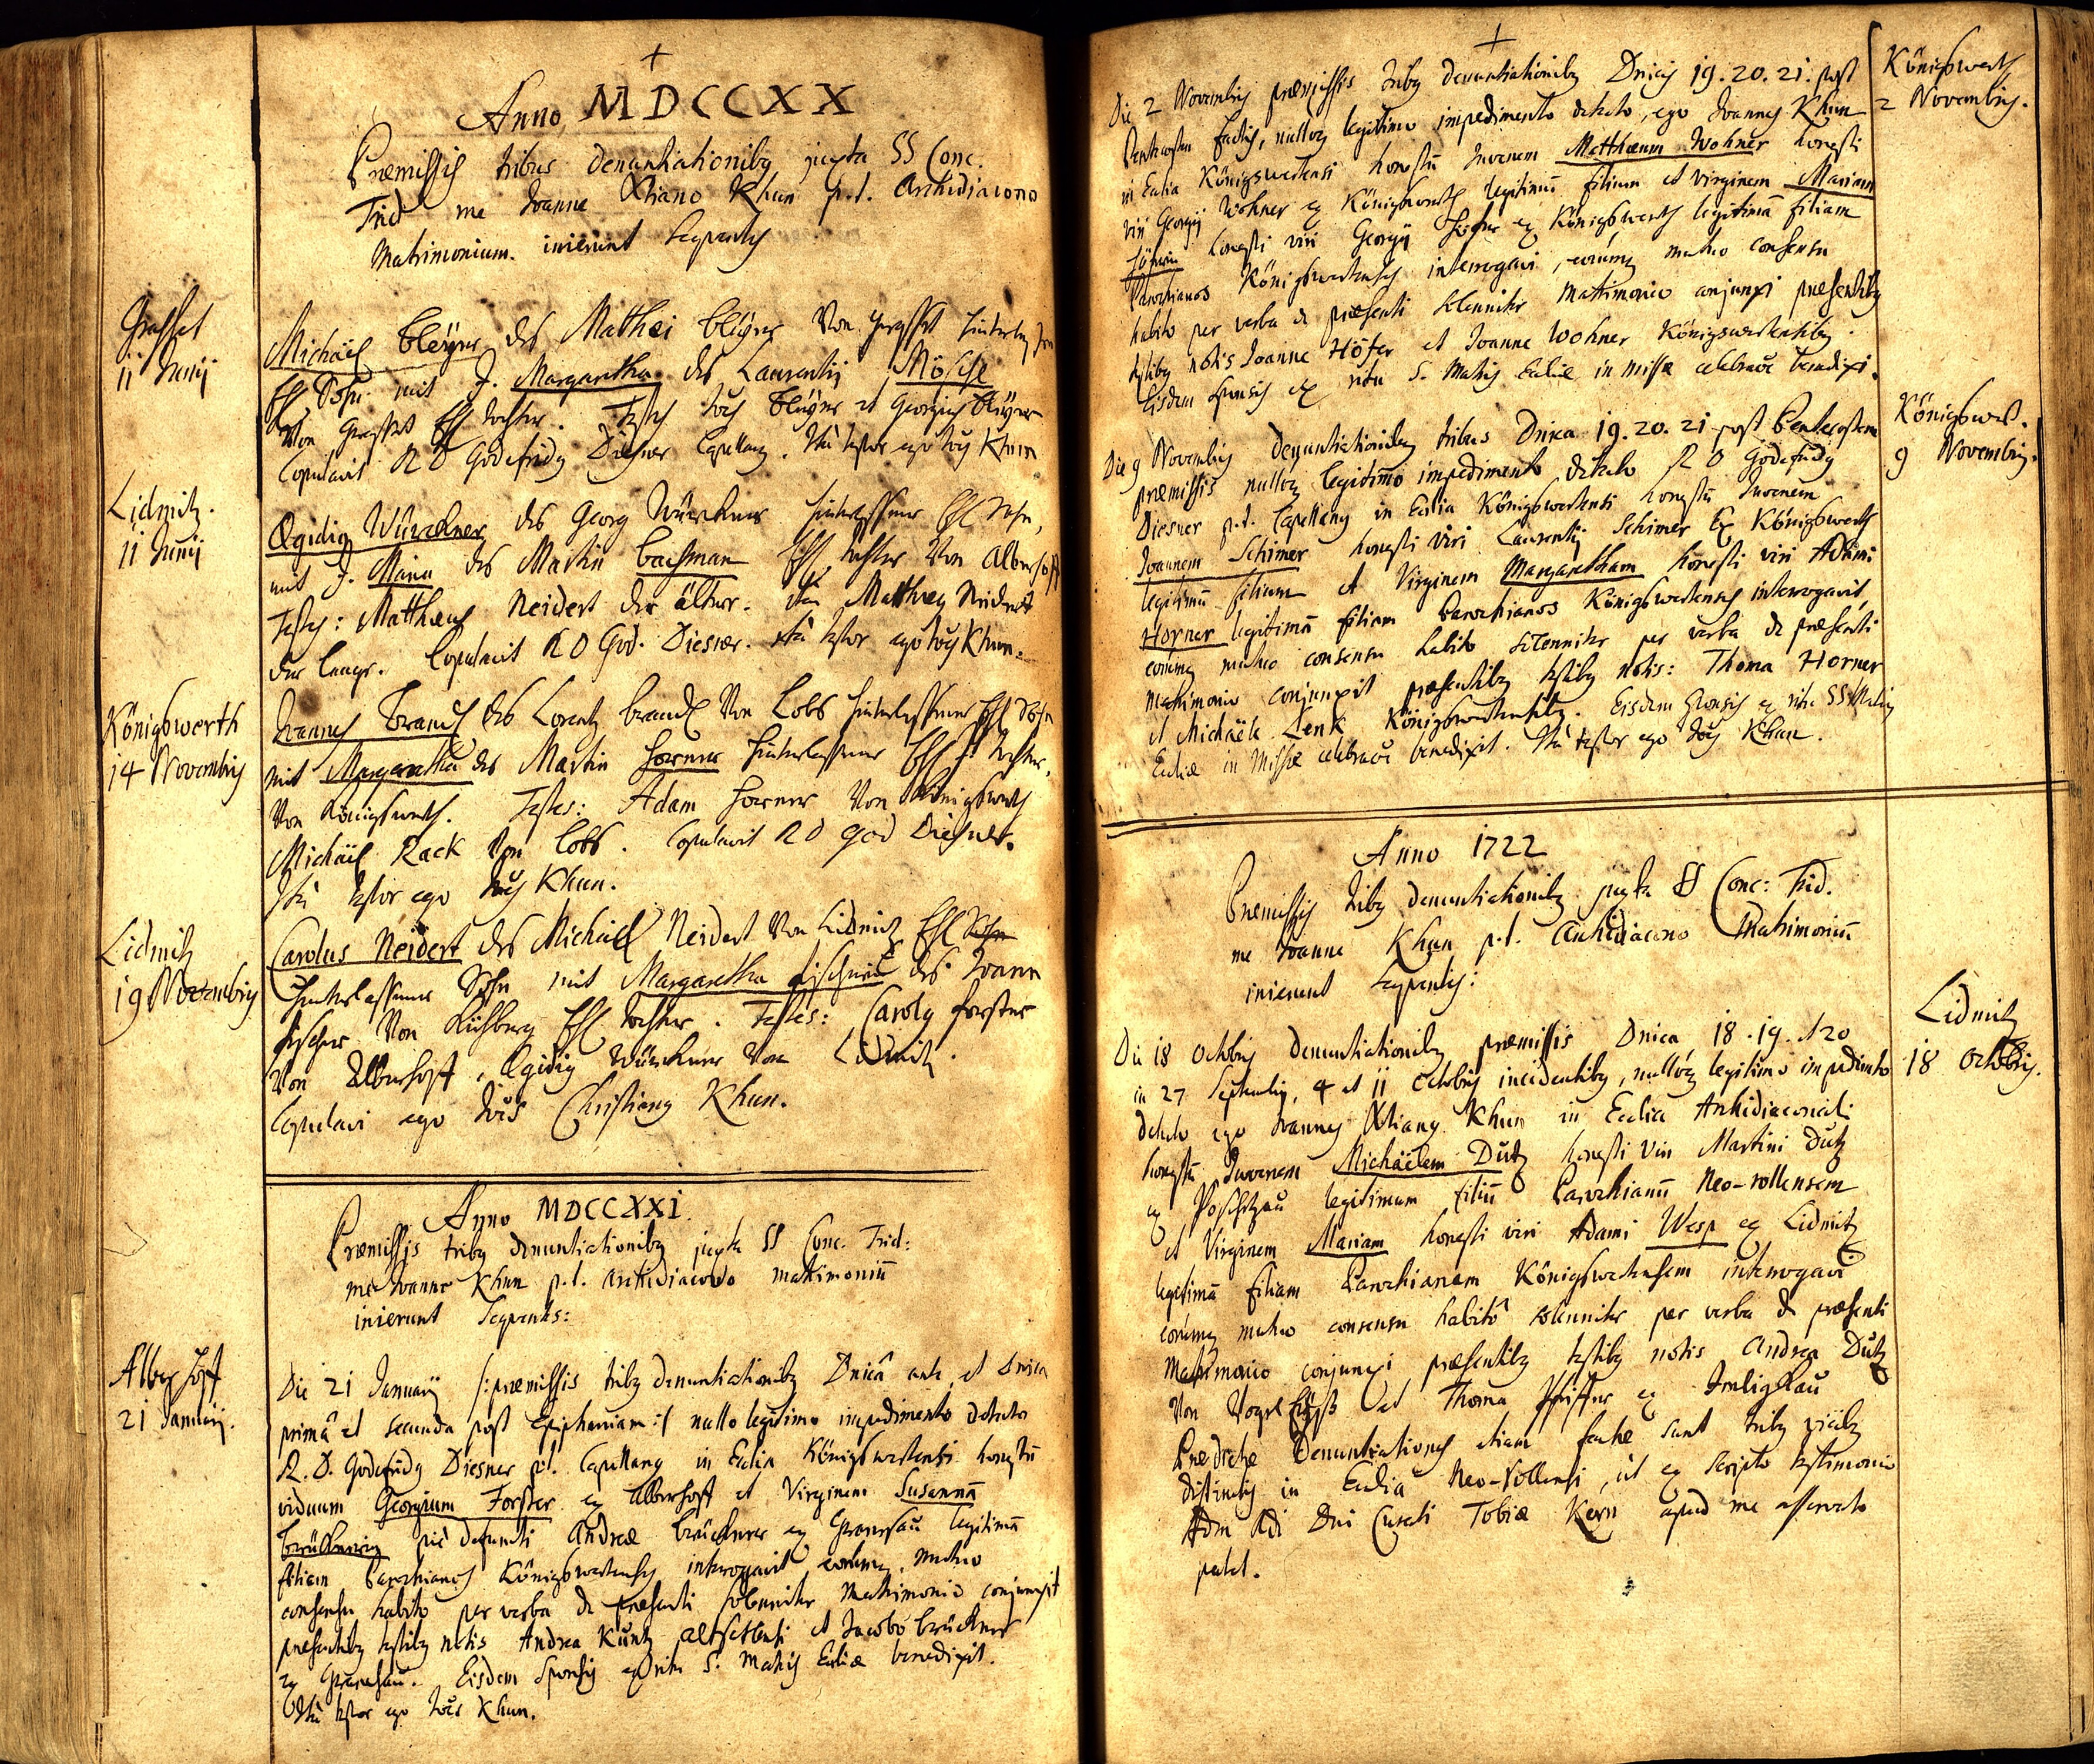 Anno MDCCXX
Præmissis tribus denuntiationibq juxta SS Conc.
Trid me Joanne Xtiano Khun p.t. Archidiacono
Matrimonium inierunt sequentes
Grasset
11 Junij
Michäel Bleÿer des Matthæi Bleÿers von Grasset hinterlaß
Ehl Sohn mit J. Margaretha des Laurentij Mösche
Von Grasset Ehl tochter. Testes Joes Bleÿer et Georgius Bleÿer
Copulavit R D Godefridq Diesner Capellanq. Ita testor ego Joes Khun
Lidmitz.
11 Junij
Ægidiq Würckner des Georg Würckners hinterlassener Ehl Sohn,
mit J. Maria des Martin Bachman Ehl. tochter Von Alberhoff
Testes: Matthæus Neidert der älter. Matthæq Neidert
der Lengr. Copulavit R D God. Diesner. Ita testor ego Joes Khun.
Königswerth
14 Novembris
Joannes Brandl des Lorentz Brandl Von Lobs hinterlassener Ehl Sohn
mit Margaretha des Martin Horner hinterlassener Ehl tochter.
Von Königswerth. Testes: Adam Horner Von Königswerth
Michäel Rack Von Lobs. Copulavit R D God Diesner.
Ita testor ego Joes Khun.
Lidmitz
19 Novembris
Carolus Neidert des Michäel Neidert Von Lidmitz Ehl Sohn
hinterlassener Sohn mit Margaretha Fischerin des Joann
Fischer Von Ehl tochter. Testes: Carolq Forster
Von Alberhoff, Ægidiq Würckner Von Lidmitz.
Copulavi ego Joes Christianq Khun.
Anno MDCCXXI.
Præmissis tribq denuntiationibq juxta SS Conc. Trid:
me Joanne Khun p.t. Archidiacono matrimoniũ
inierunt Sequentes:
Alberhoff
21 Januarij.
Die 21 Januarij /:præmissis tribq denuntiationibq Dnicâ ante, et Dnica
primâ et secunda post Epiphaniam:/ nullo legitimo impedimento detecto
R. D. Godefridq Diesner p.t. Capellanq in Eccliâ Königswertensi honestũ
viduum Georgium Forster ex Alberhoff et Virginem Susannã
Brücknerin piè defuncti Andreæ Brückner ex Granesau legitimã
filiam Parochianos Königswertenses interrogavit eorumq. mutuo
consensu habito per verba de præsenti solenniter Matrimonio conjunxit
præsentibq testibq notis Andrea Küntz et Jacobo Brückner
ex Granesau. Eisdem Sponsis ex ritu S. Matris Eccliæ benedixit.
Ita testor ego Joes Khun.
Die 2 Novembris præmissis tribq denuntiationibq Dnicis 19. 20. 21. post
Pentecosten factis, nulloq legitimo impedimento detecto, ego Joannes Khun
in Ecclia Königswertensi honestũ Juvenem Matthæum Wohner honesti
viri Georgij Wohner ex Königswerth legitimũ filium et Virginem Mariam
Höferin honesti viri Georgij Hofer ex Königswerth legitimã filiam
Parochianos Königswertenses interrogavi, eorumq mutuo consensu
habito per verba de præsenti solenniter Matrimonio conjunxi præsentibq
testibq notis Joanne Höfer et Joanne Wohner Königswertensibq.
Eisdem sponsis ex ritu S. Matris Eccliæ in missæ celebraõe benedixi.
Königswerth
2 Novembris.
Die 9 Novembris denuntiationibq tribus Dnica 19. 20. 21 post Pentecosten
præmissis nulloq legitimo impedimento detecto R D Godefridq
Diesner p.t. Capellanq in Ecclia Königswertensi honestũ Juvenem
Joannem Schimer honesti viri Laurentij Schimer Ex Königswerth
legitimũ filium et Virginem Margaretham honesti viri Adami
Horner legitimã filiam Parochianos Königswertenses interrogavit
eorumq mutuo consensu habito solenniter per verba de præsenti
Matrimonio conjunxit præsentibq testibq notis: Thoma Horner
et Michäele Lenk Königswertensibq. Eisdem Sponsis ex ritu SS Matris
Eccliæ in Missæ celebraõe benedixit. Ita testor ego Joes Khun.
Königswert.
9 Novembris.
Anno 1722
Præmissis tribq denuntiationibq juxta SS Conc: Trid.
me Joanne Khun p.t. Archidiacono Matrimoniũ
inierunt sequentes:
Die 18 Octobris denuntiationibq præmissis Dnica 18. 19. et 20
in 27 Septembris, 4 et 11 Octobris incidentibq, nulloq legitimo impedimento
detecto ego Joannes Xtianq Khun in Ecclia Archidiaconali
honestũ Juvenem Michäelem Dütz honesti viri Martini Dütz
ex Poschetzau legitimum filiũ Parochianũ Neo-rollensem
et Virginem Mariam honesti viri Adami Wesp ex Lidmitz
legitimã filiam Parochianam Königswertensem interrogavi
eorumq mutuo consensu habitô solenniter per verba de præsenti
Matrimonio conjunxi præsentibq testibq notis Andrea Dütz
Von et Thoma Pfeiffer ex Imligau
Prædictæ Denuntiationes etiam factæ sunt tribq vicibq
distinctis in Eccliâ Neo-Rollensi, ut ex scripto testimonio
Adm Rdi Dni Curati Tobiæ Kern apud me asservato
patet.
Lidmitz
18 Octobris.